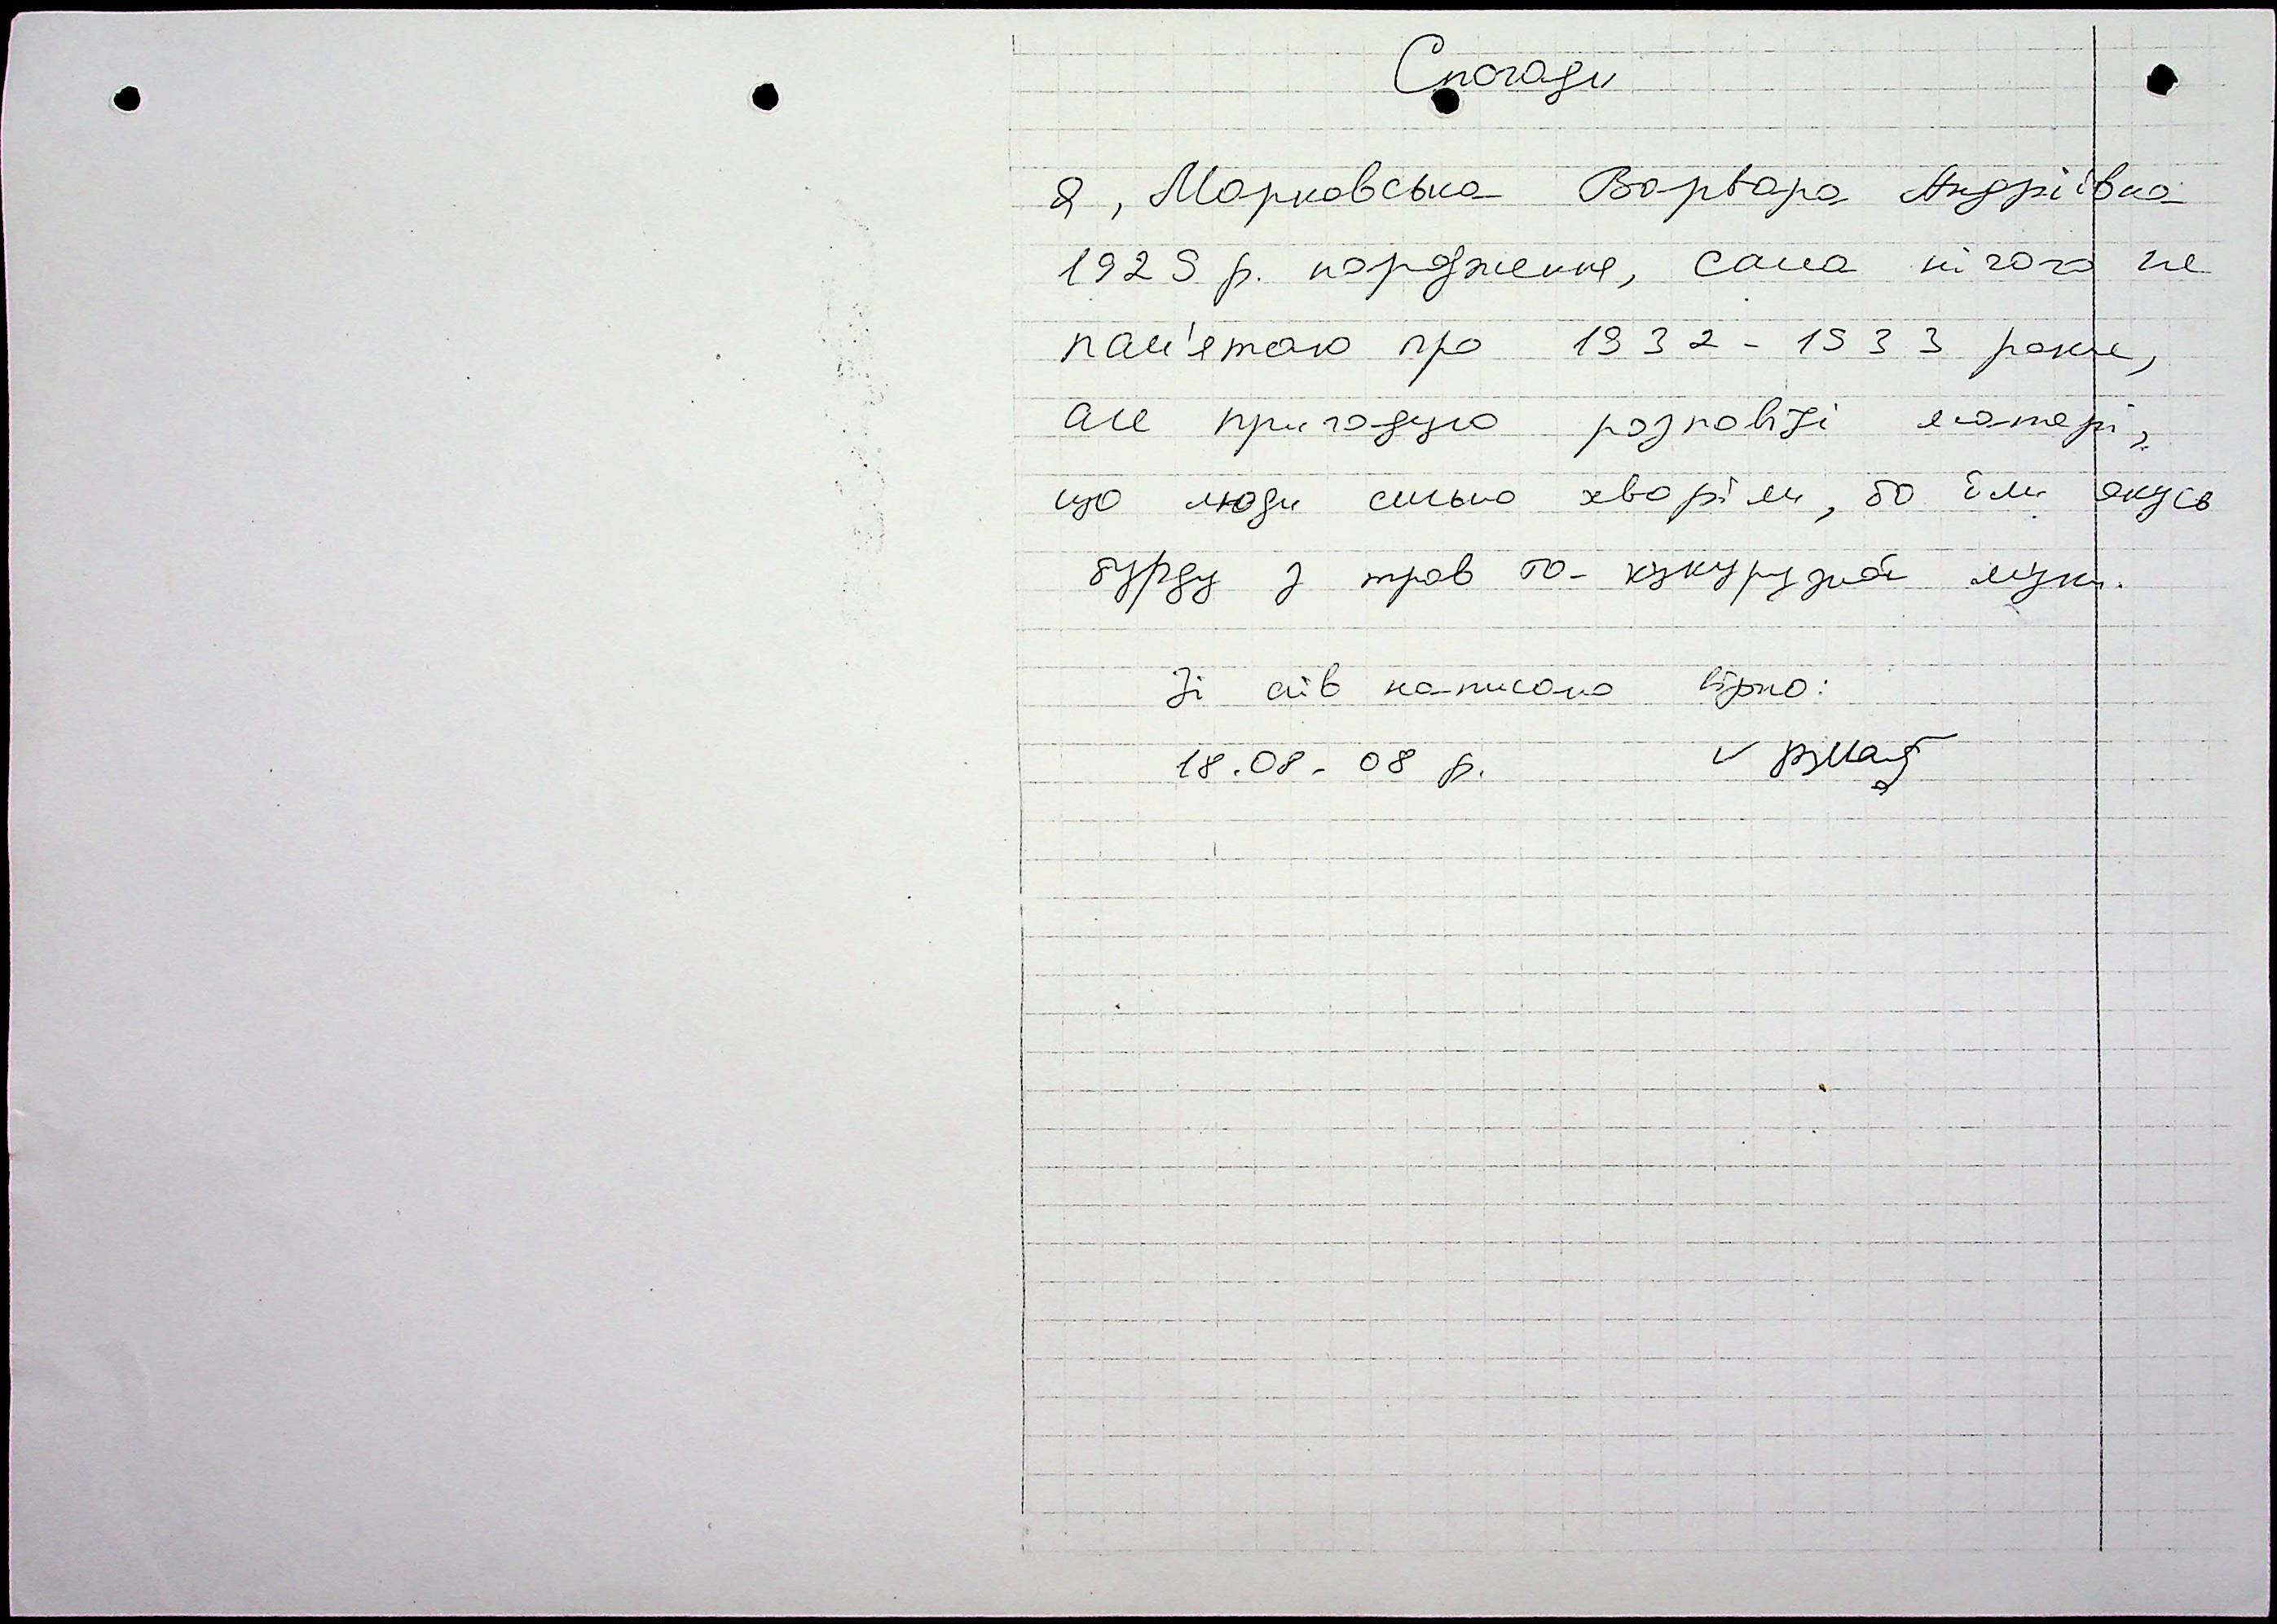 Спогади
Я, Марковська Варвара Андріївна
1929 р. народження, сама нічого не
пам'ятаю про 1932-1933 роки,
але пригадую розповіді матері,
що люди сильно хворіли, бо їли якусь
бурду з трав та кукурудзної муки.
Зі слів написано вірно:
18.08.08 р.